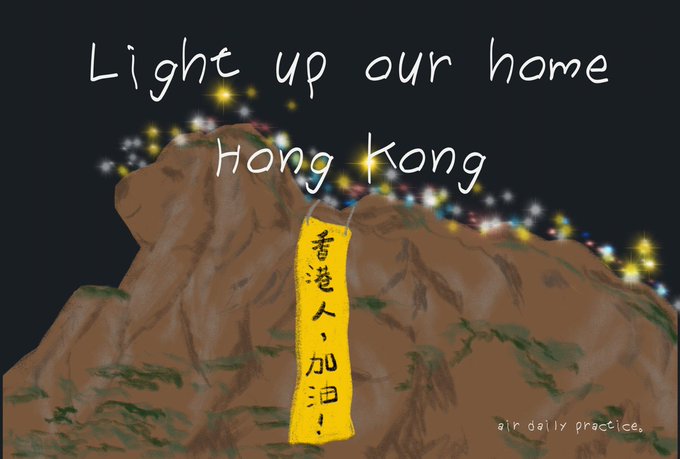 Light up our home
Hong Kong
香港人，加油！
air daily practice。